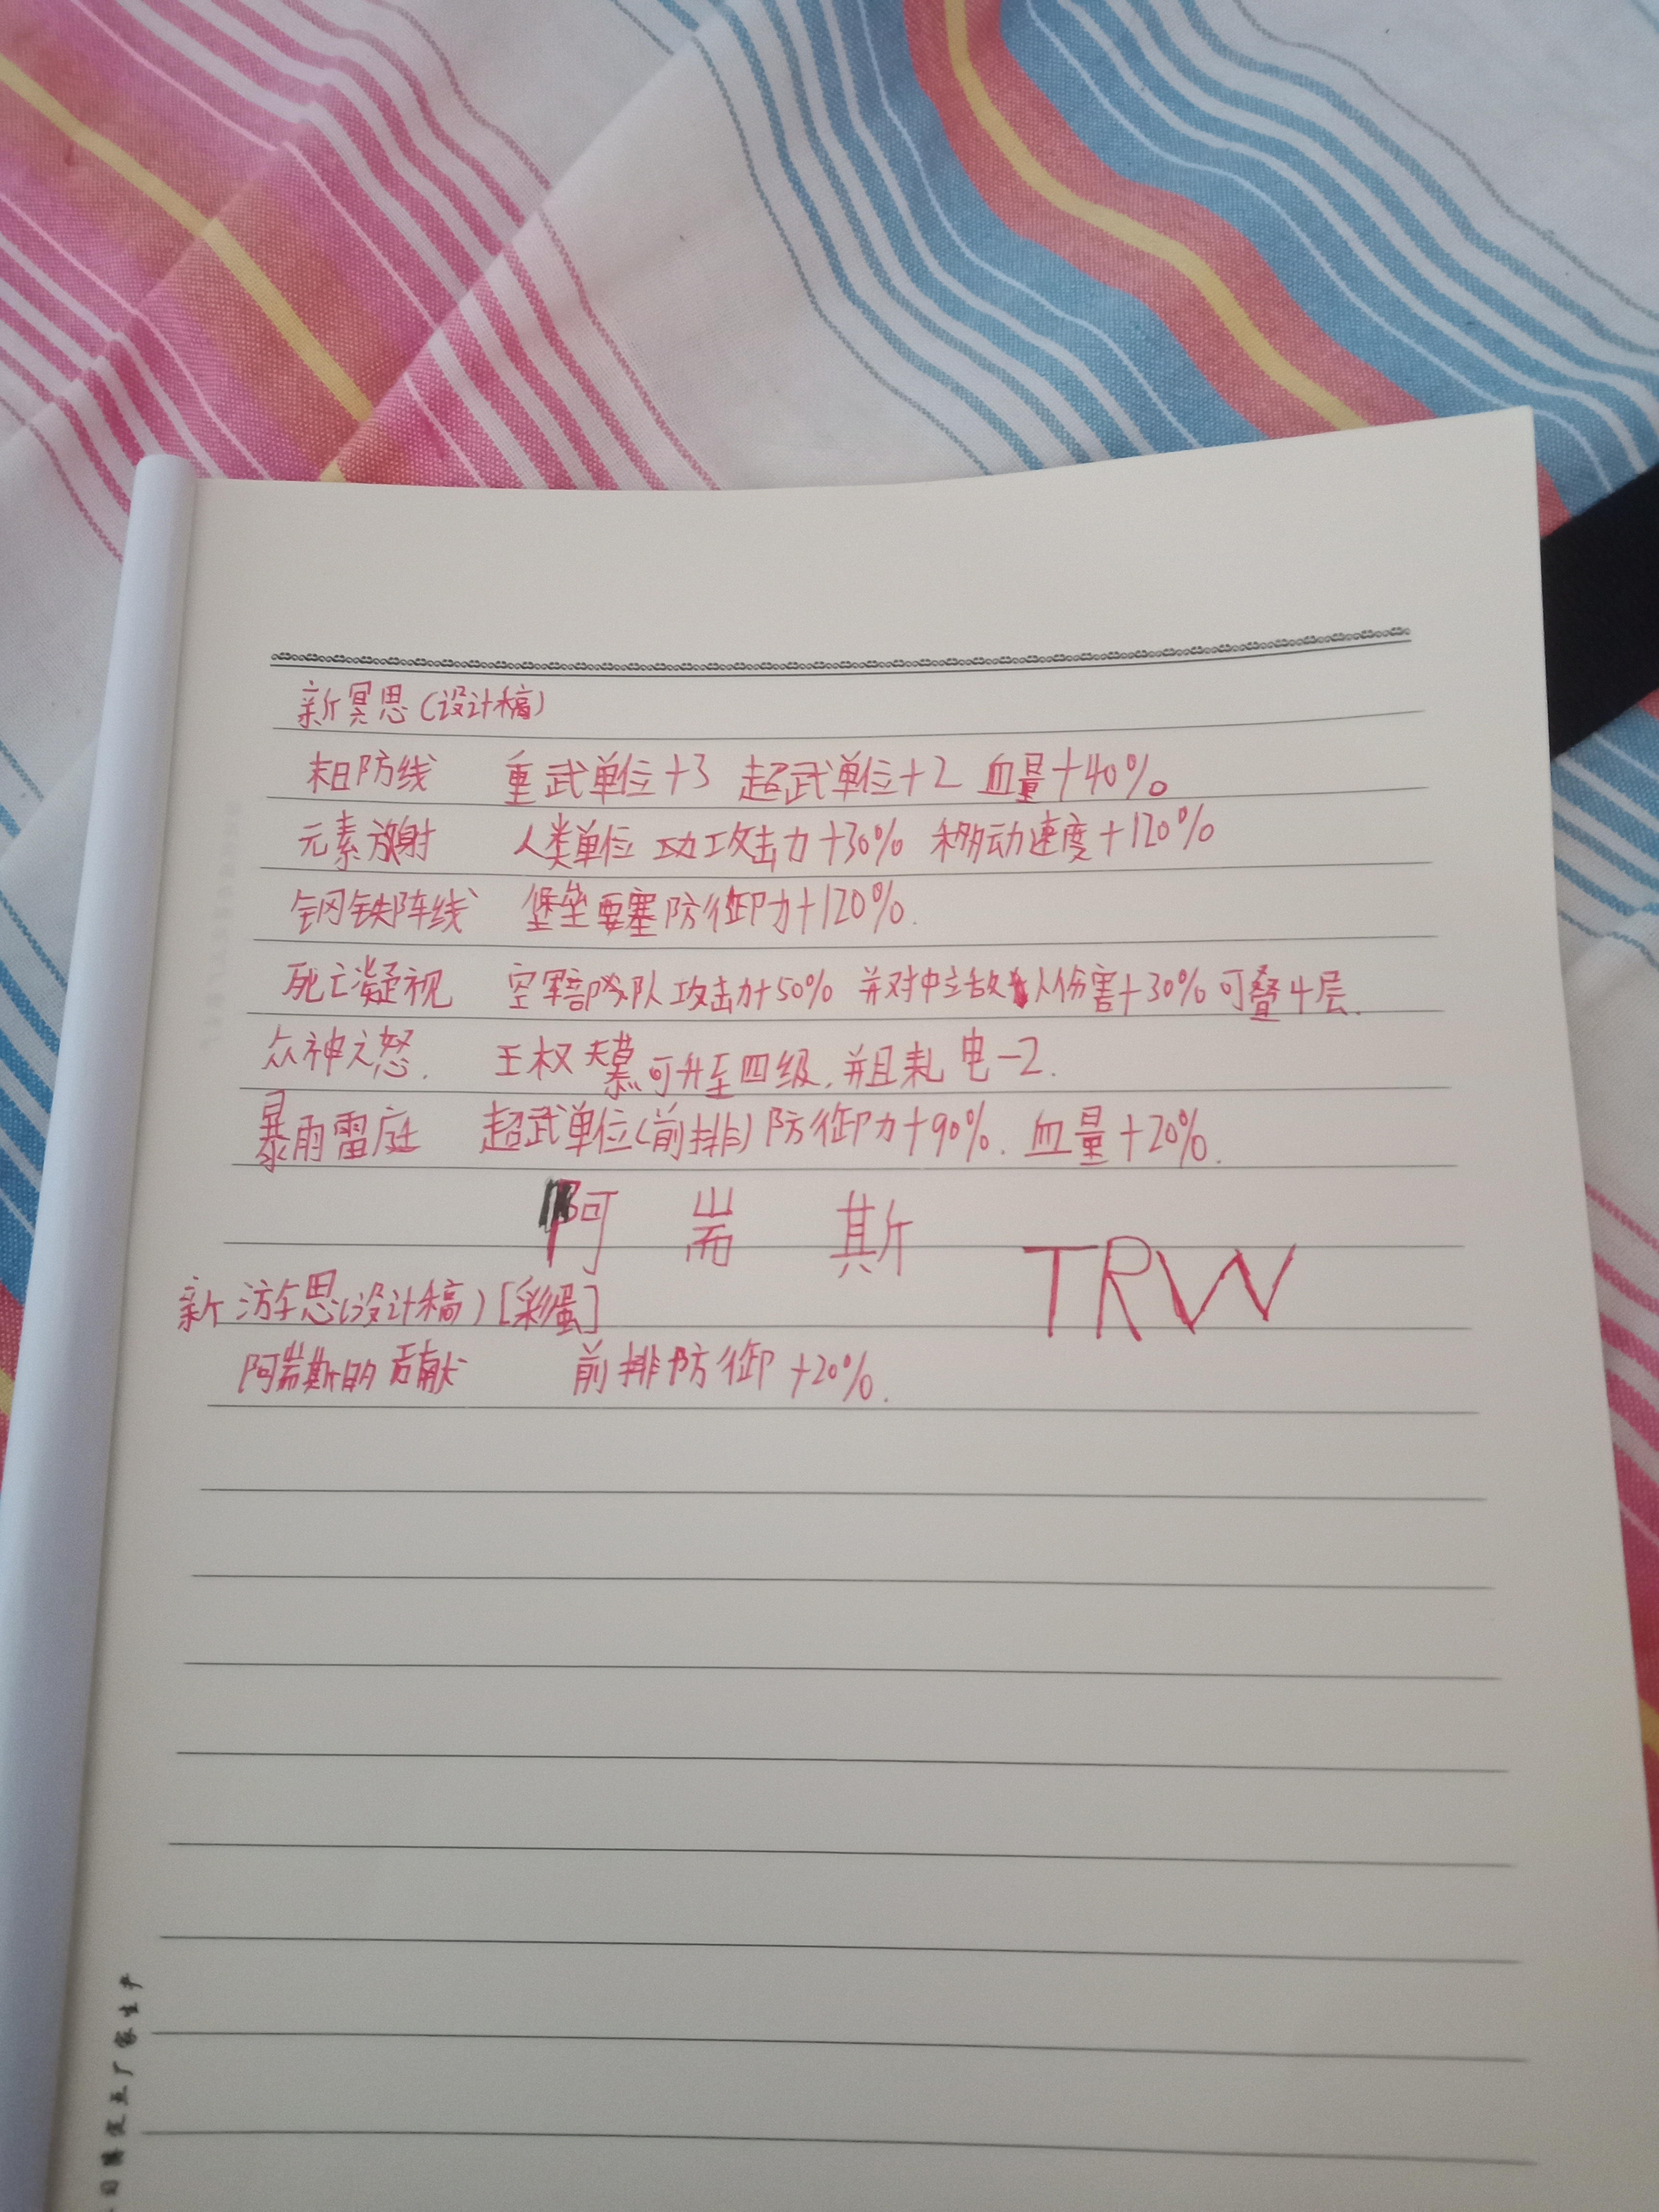 新冥思(设计稿)
末日防线 重武单位+3 超武单位+2 血量+40%。
元素放射 人类单位 功攻击力+30% 移动速度+120%
钢铁阵线 堡垒要塞防御力+120%.
死亡凝视 空军部队攻击力+50% 并对中立敌人伤害+30%可叠4层.
众神之怒. 王权天幕可升至四级,并且耗电-2.
暴雨雷庭 超武单位(前排)防御力+90%. 血量+20%.
阿 耑 斯 TRW
新 思(设计稿)[彩蛋]
阿耑斯的贡献 前排防御+20%.
厂家生产